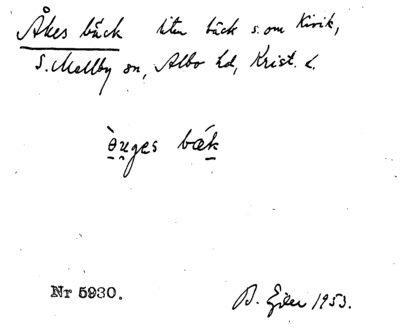 Åkes bäck liten bäck s.om Kivik,
S. Mellby sn, Albo hd, Krist. L.
ə̀u̯ges bǽk
Nr 5930.
B. Ejder 1953.